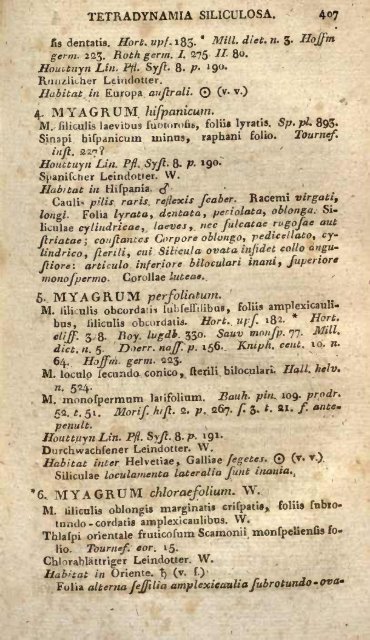 TETRADYNAMIA SILICULOSA. 407
sis dentatis. Hort. upf. 183. * Mill. dict. n. 3. Hoffm
germ. 223. Roth germ. I. 275. II. 80.
Houttuyn Lin. Pfl. Syst. 8. p. 190.
Runzlicher Leindotter.
Habitat in Europa australi. ☉ (v. v.)
4. MYAGRUM hispanicum.
M. siliculis laevibus subtorosis, foliis lyratis. Sp. pl. 893.
Sinapi hispanicum minus, raphani folio. Tournef.
inst. 227?
Houttuyn Lin. Pfl. Syst. 8. p. 190.
Spanischer Leindotter. W.
Habitat in Hispania. ♂
Caulis pilis raris reflexis scaber. Racemi virgati,
longi. Folia lyrata, dentata, petiolata, oblonga. Si-
liculae cylindricae, laeves, nec sulcatae rugosae aut
striatae; constantes Corpore oblongo, pedicellato, cy-
lindrico, sterili, cui Silicula ovata insidet collo angu-
stiore: articulo inferiore biloculari inani, superiore
monospermo. Corollae luteae.
5. MYAGRUM perfoliatum.
M. siliculis obcordatis subsessilibus, foliis amplexicauli-
bus, siliculis obcordatis. Hort. upf. 182. * Hort.
cliff. 328. Roy. lugdb. 330. Sauv monsp. 77. Mill.
dict. n. 5. Doerr. nass. p. 156. Kniph. cent. 10. n.
64. Hoffm. germ. 223.
M. loculo secundo conico, sterili biloculari. Hall. helv.
n. 524.
M. monospermum latifolium. Bauh. pin. 109. prodr.
52. t. 51. Moris. hist. 2. p. 267. s. 3. t. 21. f. ante-
penult.
Houttuyn Lin. Pfl. Syst. 8. p. 191.
Durchwachsener Leindotter. W.
Habitat inter Helvetiae, Galliae segetes. ☉ (v. v.)
Siliculae loculamenta lateralia sunt inania.
*6. MYAGRUM chloraefolium. W.
M. siliculis oblongis marginatis crispatis, foliis subro-
tundo-cordatis amplexicaulibus. W.
Thlaspi orientale fruticosum Scamonii monspeliensis fo-
lio. Tournef. cor. 15.
Chlorablättriger Leindotter. W.
Habitat in Oriente. ♄ (v. s.)
Folia alterna sessilia amplexicaulia subrotundo-ova-